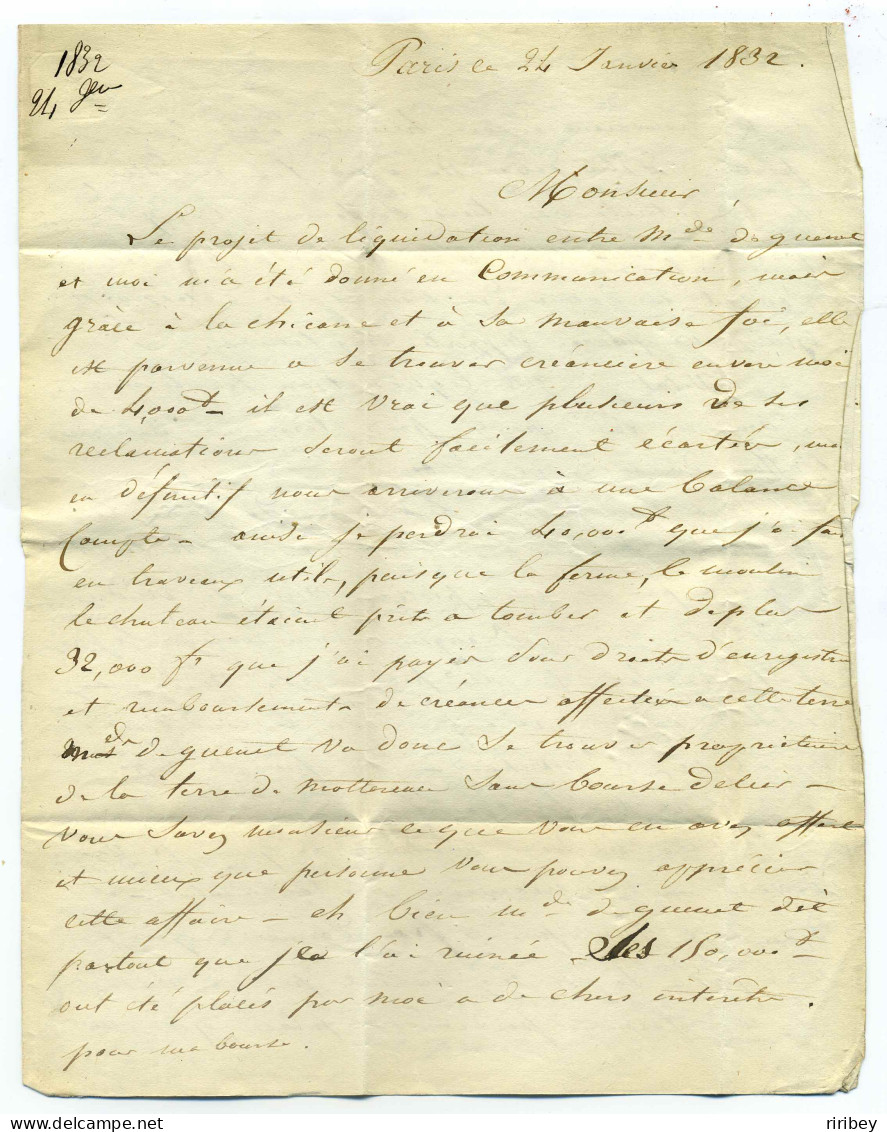 1832
24 Jer
Paris ce 24 Janvier 1832.
Monsieur
Le projet de liquidation entre Mde de guenet
et moi m'a été donné en Communication, mais
grâce à la chicane et à sa mauvaise foi, elle
est parvenue a se trouver créancière envers moi
de 4,000 f - il est vrai que plusieurs de ses
reclamations seront facilement écartées, mais
en définitif nous arriverons à une balance
Compte - ainsi je perdrai 40,000 f que j'ai fai
en travaux utils, puisque la ferme, le moulin
le chateau étaient prêts a tomber et de plus
32,000 fs que j'ai payés pour droits d'enregistre
et remboursements de créances affectées a cette terre
Mde de guenet va donc se trouver propriétaire
de la terre de mottereau sans bourse delier -
vous savez monsieur ce que vous en avez affert
et mieux que personne vous pouvez apprécier
cette affaire - eh bien mde de guenet dit
partout que je l'ai ruinée les 150,000 f
ont été placés par moi a de chers interêts.
pour ma bourse.
riribey